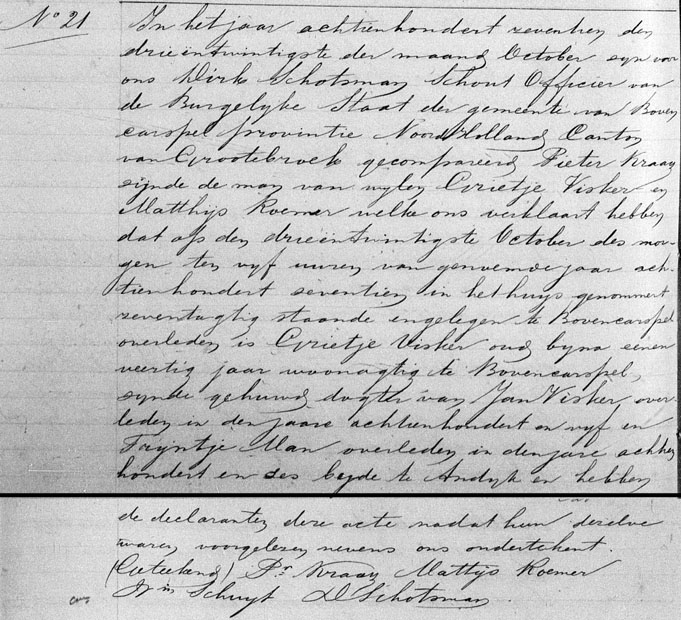 No 21
In het jaar achtienhondert zeventien den
drieëntwintigste der maand October zyn voor
ons Dirk Schotsman Schout Officier van
de Burgelyke Staat der gemeente van Boven
carspel provintie Noord Holland Canton
van Grootebroek gecompareerd Pieter Kraay
zijnde de man van wylen Grietje Visker en
Matthijs Roemer welke ons verklaart hebben
dat op den drieëntwintigste October des mor-
gen ten vyf uuren van genoemde jaar ach-
tienhondert seventien in het huys genommert
zeventagtig staande en gelegen te Bovencarspel
overleden is Grietje Visker oud byna eenen
veertig jaar woonagtig te Bovencarspel,
zynde gehuwd dogter van Jan Visker over-
leden in den jaare achtienhondert en vyf en
Trijntje Man overleden in den jare achtien
hondert en ses beyde te Andyk en hebben
de declaranten deze acte nadat hun dezelve
waren voorgelezen nevens ons ondertekent.
(Geteekend) Pr Kraay Mattijs Roemer
Schuyt D Schotsman